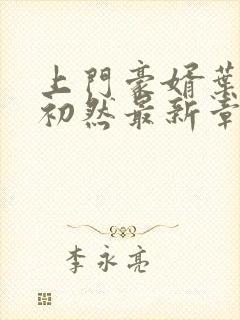 上門豪婿葉
初然最新章
李永亮